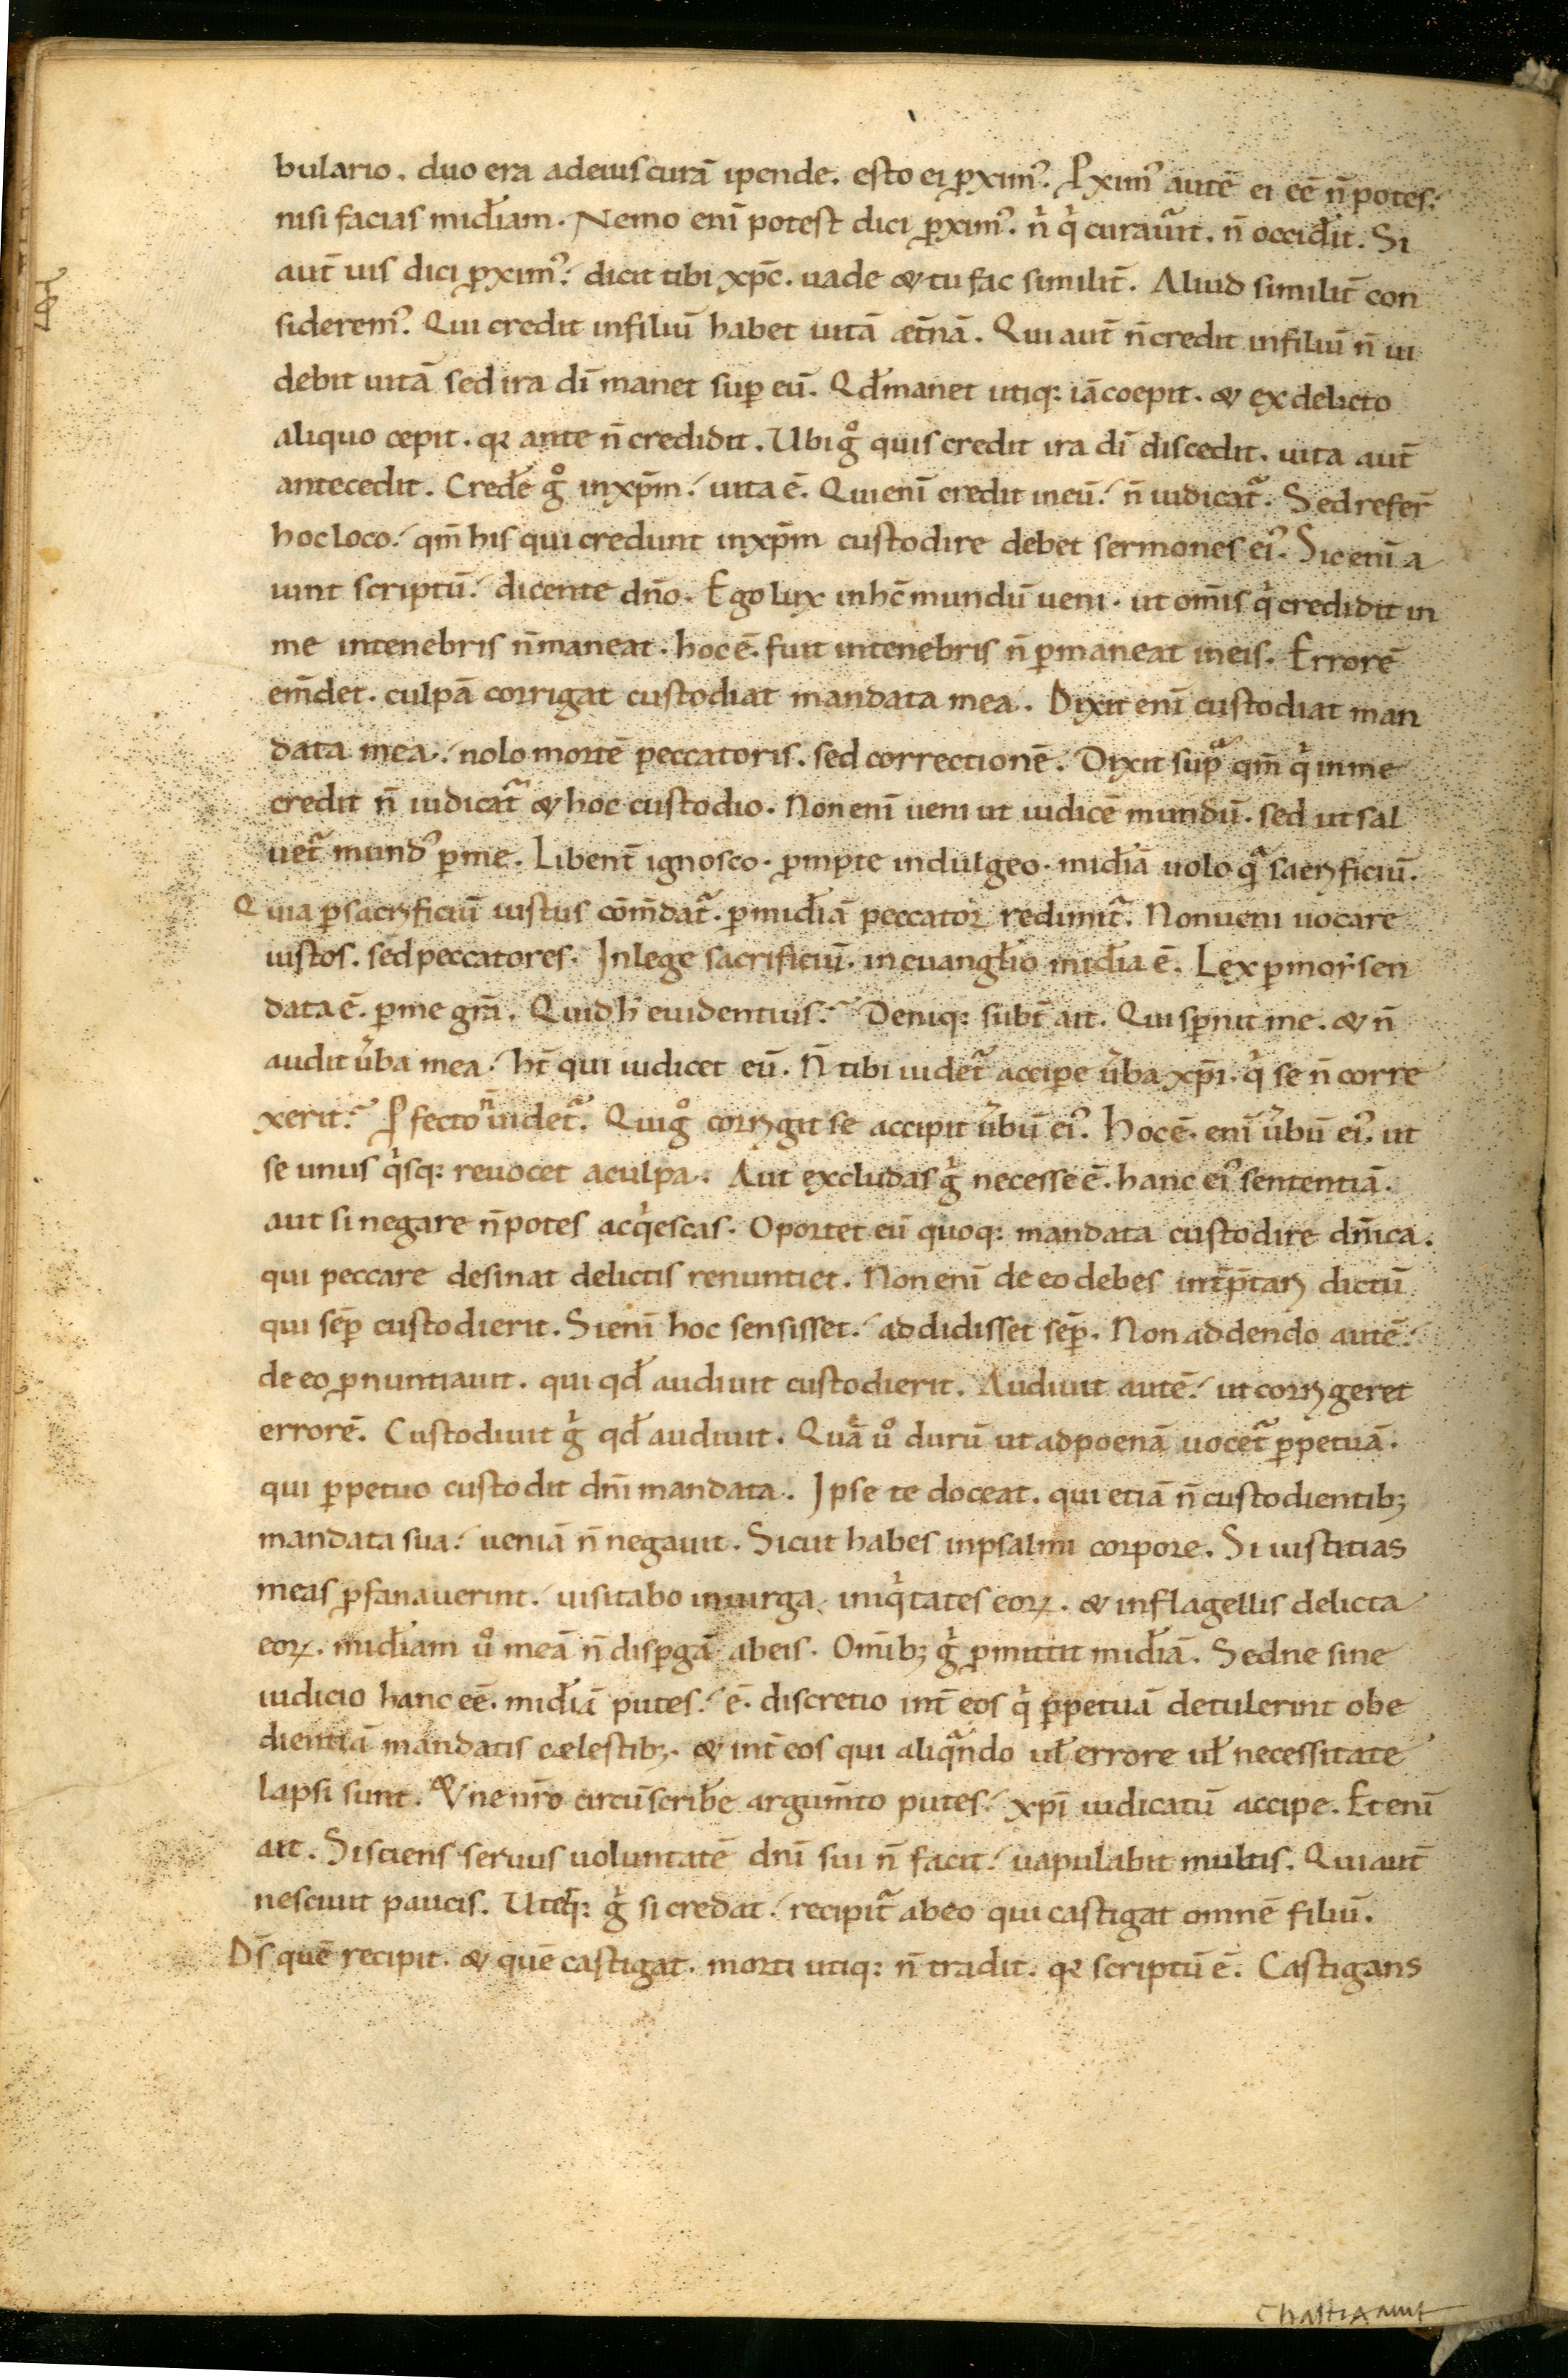 bulario. duo era adeius curā ipende. esto ei ꝓximꝰ. Ꝓximꝰ autē ei eē n̄ potes.
nisi facias mīdiam. Nemo enī potest dici ꝓximꝰ. n̄ qͥ curauͣit. n̄ occidit. Si
aut̄ uis dici ꝓximꝰ. dicit tibi xp̄c. uade & tu fac similit̄. Aliud similit̄ con
sideremꝰ. Qui credit infiliū habet uitā æt̄nā. Qui aut̄ n̄ credit infiliū n̄ ui
debit uitā sed ira dī manet suꝑ eū. Qd̄ manet utiq: iā coepit. & ex delicto
aliquo cepit. qꝛ ante n̄ credidit. Ubi gͦ quis credit ira dī discedit. uita aut̄
antecedit. Credē gͦ inxp̄m. uita ē. Qui enī credit ineū. n̄ iudicatͣ. Sed refer̄
hoc loco. qm̄ his qui credunt inxp̄m custodire debet sermones eiꝰ. Sic enī a
iunt scriptū. dicente dn̄o. Ego lux inhc̄ mundū ueni. ut om̄is qͥ credidit in
me intenebris n̄ maneat. hoc ē. fuit intenebris n̄ ꝑmaneat ineis. Errorē
em̄det. culpā corrigat custodiat mandata mea. Dixit enī custodiat man
data mea. nolo mortē peccatoris. sed correctionē. Dixit supͣ qm̄ qͥ inme
credit n̄ iudicatͣ & hoc custodio. Non enī ueni ut iudicē mundū. sed ut sal
uetͣ mundꝰ ꝑme. Libent̄ ignosco. ꝓmpte indulgeo. mīdiā uolo qͣ sacrificiū.
Quia ꝑsacrificiū iustus cōm̄datͣ. ꝑmīdiā peccator redimitͣ. Non ueni uocare
iustos. sed peccatores. Inlege sacrificiū. in euanglio mīdia ē. Lex ꝑmoẏsen
data ē. ꝑme gr̄a. Quid h̄ euidentius. Deniq: subt̄ ait. Qui sꝑnit me. & n̄
audit uͥba mea. ht̄ qui iudicet eū. N̄ tibi uidetͣ acciꝑe uͥba xp̄i. qͥ se n̄ corre
xerit. Ꝓfecto n̄ uidetͣ. Qui gͦ corrigit se accipit uͥbū eiꝰ. Hoc ē. enī uͥbū eiꝰ. ut
se unus qͥsq: reuocet aculpa. Aut excludas gͥ necesse ē. hanc eiꝰ sententiā.
aut si negare n̄ potes acqͥescas. Oportet eū quoq: mandata custodire dn̄ica.
qui peccare desinat delictis renuntiet. Non enī de eo debes int̄p̄tari dictū
qui sēꝑ custodierit. Si enī hoc sensisset. addidisset sēꝑ. Non addendo autē.
de eo ꝓnuntiauit. qui qd̄ audiuit custodierit. Audiuit autē. ut corrigeret
errorē. Custodiuit gͥ qd̄ audiuit. Quā uͦ durū ut adpoenā uocetͣ ꝑpetuā.
qui ꝑpetuo custodit dn̄i mandata. Ipse te doceat. qui etiā n̄ custodientibꝫ
mandata sua. ueniā n̄ negauit. Sicut habes inpsalmi corpore. Si iustitias
meas ꝓfanauerint. uisitabo inuirga iniqͥtates eoꝝ. & inflagellis delicta
eoꝝ. mīdiam uͦ meā n̄ disꝑgā abeis. Omībꝫ gͥ ꝓmittit mīdiā. Sed ne sine
iudicio hanc eē. mīdiā putes. ē. discretio int̄ eos qͥ ꝑpetuā detulerint obe
dientiā mandatis cælestibꝫ. & int̄ eos qui aliqͣndo ul̄ errore ul̄ necessitate
lapsi sunt. & ne nr̄o circūscribe argum̄to putes. xp̄i iudicatū accipe. Et enī
ait. Si sciens seruus uoluntatē dn̄i sui n̄ facit. uapulabit multis. Qui aut̄
nesciuit paucis. Ut̄q: gͥ si credat. recipitͣ abeo qui castigat omnē filiū.
Ds̄ quē recipit. & quē castigat. morti utiq: n̄ tradit. qꝛ scriptū ē. Castigans